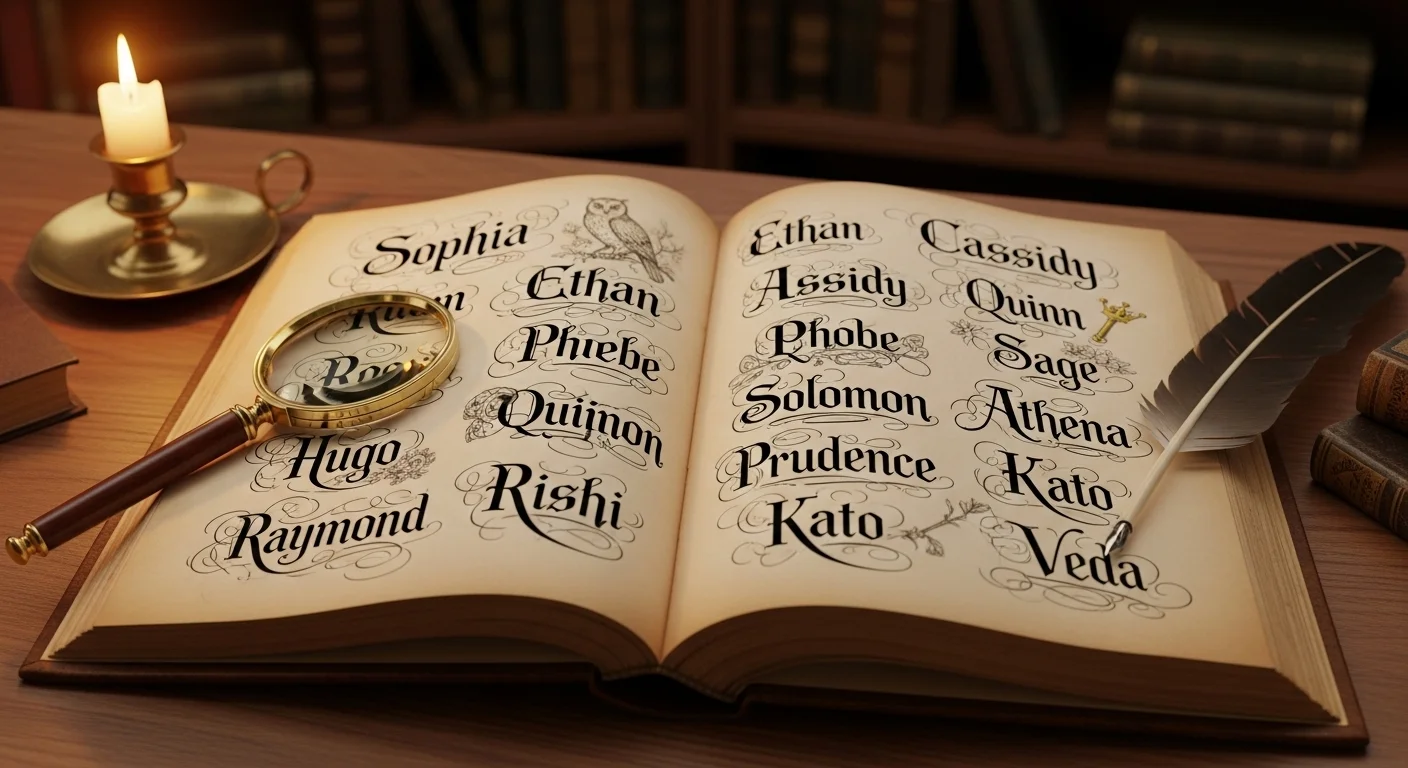 Sophia
Ethan
Phiebe
Quijnon
Hugo
Rishi
Raymond
Ethan
Cassidy
Assidy
Quinn
Phobe
Sage
Solomon
Athena
Prudence
Kato
Kato
Veda